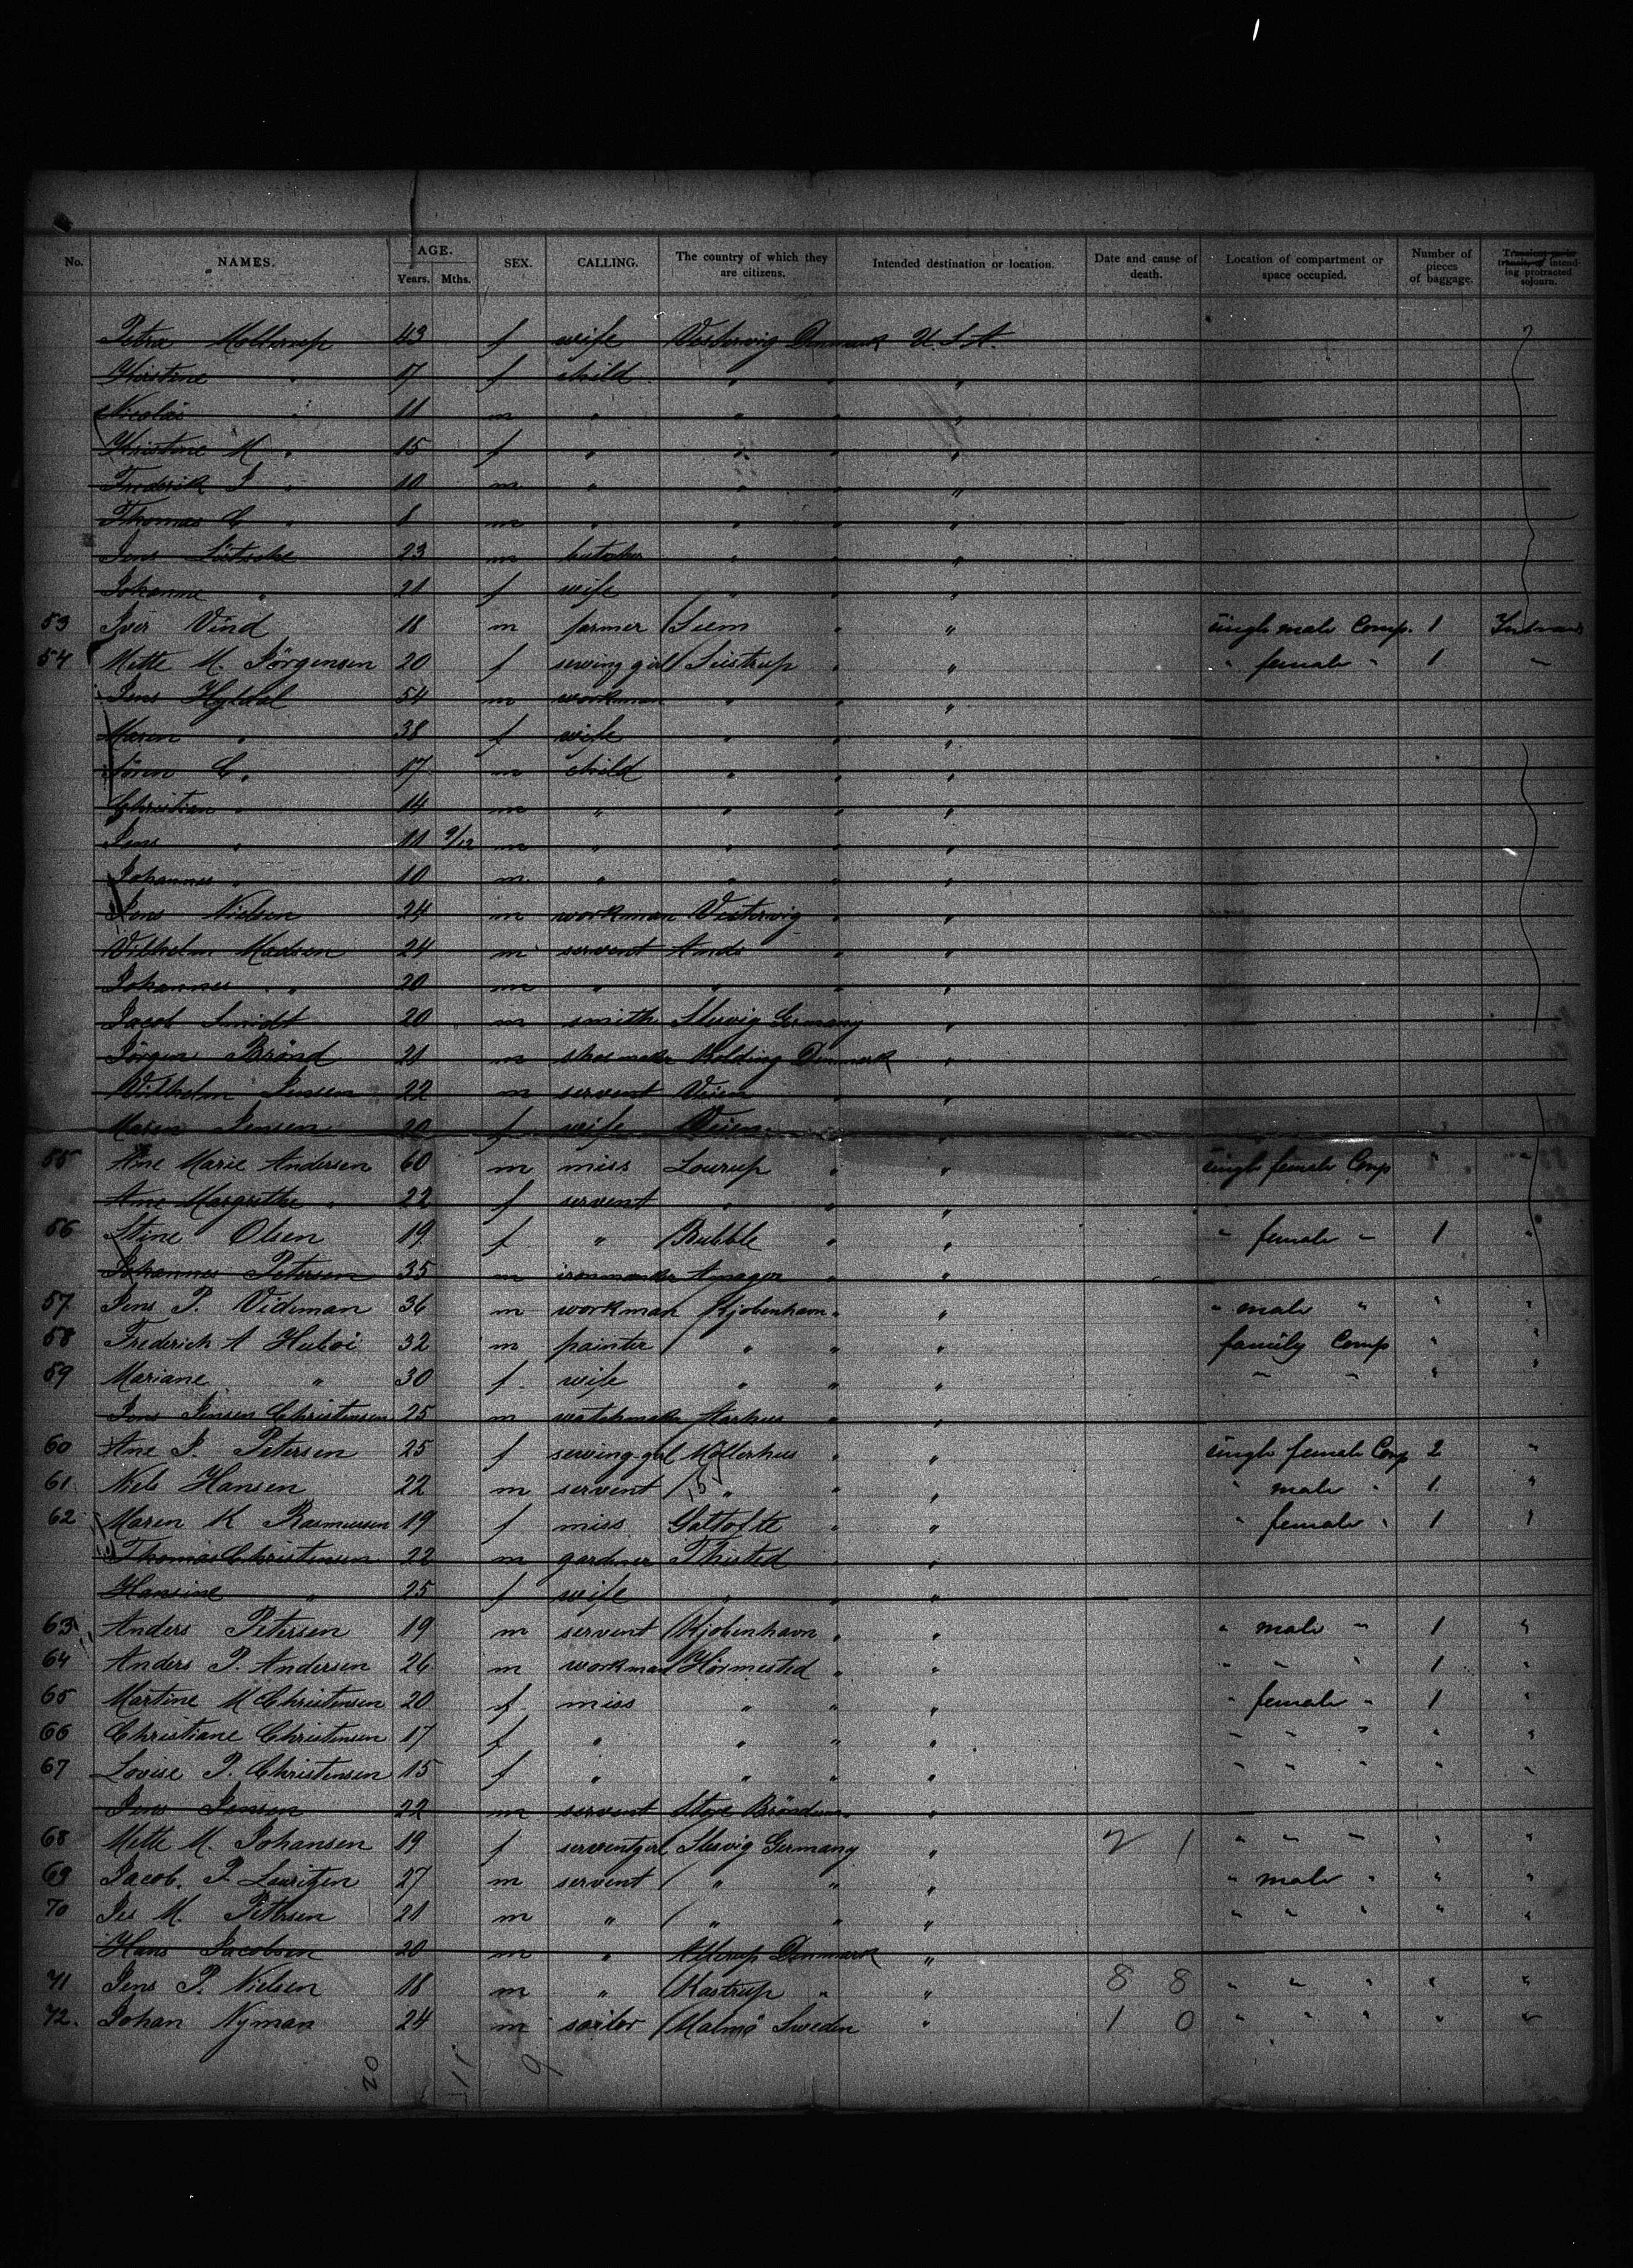 No. NAMES. AGE. Years. Mths. SEX. CALLING. The country of which they are citizens. Intended destination or location. Date and cause of death. Location of compartment or space occupied. Number of pieces of baggage. Transient in transit, or intending protracted sojourn.
Petra Mollerup 43 f wife Vestervig Denmark U.S.A.
Kirstine " 17 f child " " "
Nicolai " 11 m " " " "
Kristine M " 15 f " " " "
Frederik J " 10 m " " " "
Thomas C " 8 m " " " "
Jens 23 m butcher " " "
Johanne " 21 f wife " " "
53 Iver Vind 18 m farmer Seem " " single male Comp. 1
54 Mette M. Jörgensen 20 f sewing girl Seistrup " " " female " 1 "
Jens Hyldal 54 m workman " " "
Maren " 38 f wife " " "
Sören C. " 17 m child " " "
Christian " 14 m " " " "
Jens " 11 9/12 m " " " "
Johannes " 10 m " " " "
Jens Nielsen 24 m workman Vestervig " "
Vilhelm Madsen 24 m servent " "
Johannes " 20 m " " " "
Jacob Smidt 20 m smith Slesvig Germany "
Jörgen Brönd 21 m shoemaker Kolding Denmark "
Vilhelm Jensen 22 m servent " "
Maren Jensen 20 f wife "
55 Ane Marie Andersen 60 m miss Lourup " " single female Comp " "
Ane Margrethe " 22 f servent " " "
56 Stine Olsen 19 f " " " " female " 1 "
Johannes Petersen 35 m Amager " "
57 Jens P. Videman 36 m workman Kjobenhavn " " " male " " "
58 Frederich A Huboi 32 m painter " " " family Comp " "
59 Mariane " 30 f wife " " " " " " "
Jens Jensen Christensen 25 m watchmaker Aarhus " "
60 Ane J. Petersen 25 f sewing-girl Mollerhus " " single female Comp 2 "
61 Niels Hansen 22 m servent " " " " male " 1 "
62 Maren K Rasmussen 19 f miss " " " female " 1 "
Thomas Christensen 22 m gardner Thisted " "
Hansine " 25 f wife " " "
63 Anders Petersen 19 m servent Kjobenhavn " " " male " 1 "
64 Anders P. Andersen 26 m workman Hörmested " " " " " 1 "
65 Martine M Christensen 20 f miss " " " " female " 1 "
66 Christiane Christensen 17 f " " " " " " " " "
67 Lovise P. Christensen 15 f " " " " " " " " "
Jens Jensen 22 m servent Store Bröndum "
68 Mette M. Johansen 19 f serventgirl Slesvig Germany " 2 1 " " " " "
69 Jacob. P. Lauritzen 27 m servent " " " " male " " "
70 Jes M. Petersen 21 m " " " " " " " " "
Hans Jacobsen 20 m " Denmark "
71 Jens P. Nielsen 18 m " Kastrup " " 8 8 " " " " "
72. Johan Nyman 24 m sailor Malmö Sweden " 1 0 " " " " "
20 11 9